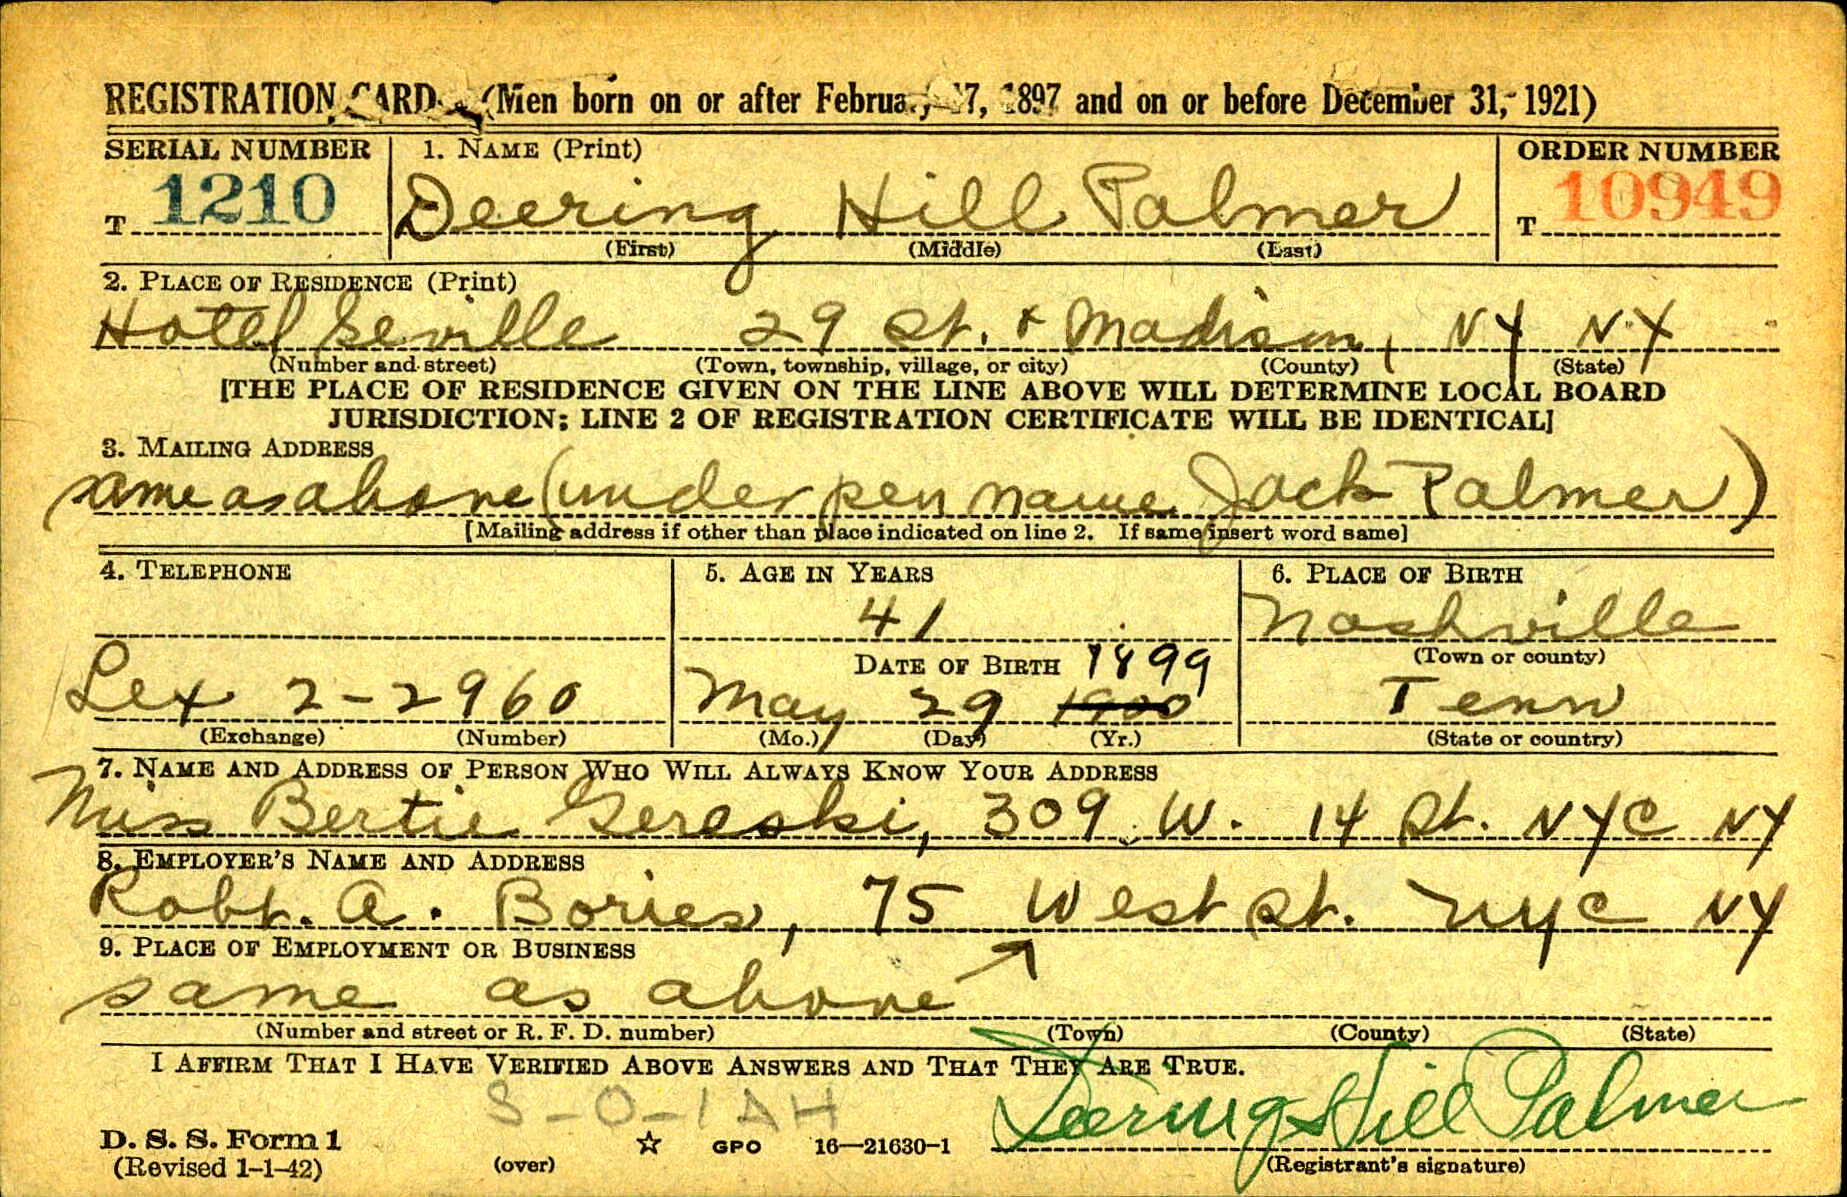 REGISTRATION CARD (Men born on or after February 17, 1897 and on or before December 31, 1921)
SERIAL NUMBER 1. NAME (Print) ORDER NUMBER
T 1210 Deering Hill Palmer T 10949
(First) (Middle) (Last)
2. PLACE OF RESIDENCE (Print)
Hotel Seville 29 St. & Madison, NY NY
(Number and street) (Town, township, village, or city) (County) (State)
[THE PLACE OF RESIDENCE GIVEN ON THE LINE ABOVE WILL DETERMINE LOCAL BOARD
JURISDICTION; LINE 2 OF REGISTRATION CERTIFICATE WILL BE IDENTICAL]
3. MAILING ADDRESS
same as above (under pen name Jack Palmer)
[Mailing address if other than place indicated on line 2. If same insert word same]
4. TELEPHONE 5. AGE IN YEARS 6. PLACE OF BIRTH
41 Nashville
DATE OF BIRTH 1899 (Town or county)
Lex 2-2960 May 29 1900 Tenn
(Exchange) (Number) (Mo.) (Day) (Yr.) (State or country)
7. NAME AND ADDRESS OF PERSON WHO WILL ALWAYS KNOW YOUR ADDRESS
Miss Bertie Gereski, 309 W. 14 St. NYC NY
8. EMPLOYER'S NAME AND ADDRESS
Robt. A. Bories, 75 West St. NYC NY
9. PLACE OF EMPLOYMENT OR BUSINESS
same as above
(Number and street or R. F. D. number) (Town) (County) (State)
I AFFIRM THAT I HAVE VERIFIED ABOVE ANSWERS AND THAT THEY ARE TRUE.
Deering Hill Palmer
D. S. S. Form 1
(Revised 1-1-42) (over) ☆ GPO 16—21630-1 (Registrant's signature)